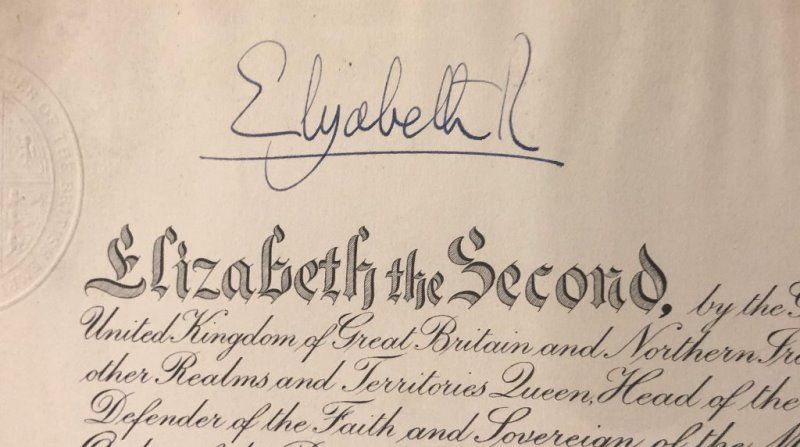 Elizabeth R
Elizabeth the Second, by the
United Kingdom of Great Britain and Northern
other Realms and Territories Queen, Head of the
Defender of the Faith and Sovereign of the
OF THE BRITISH